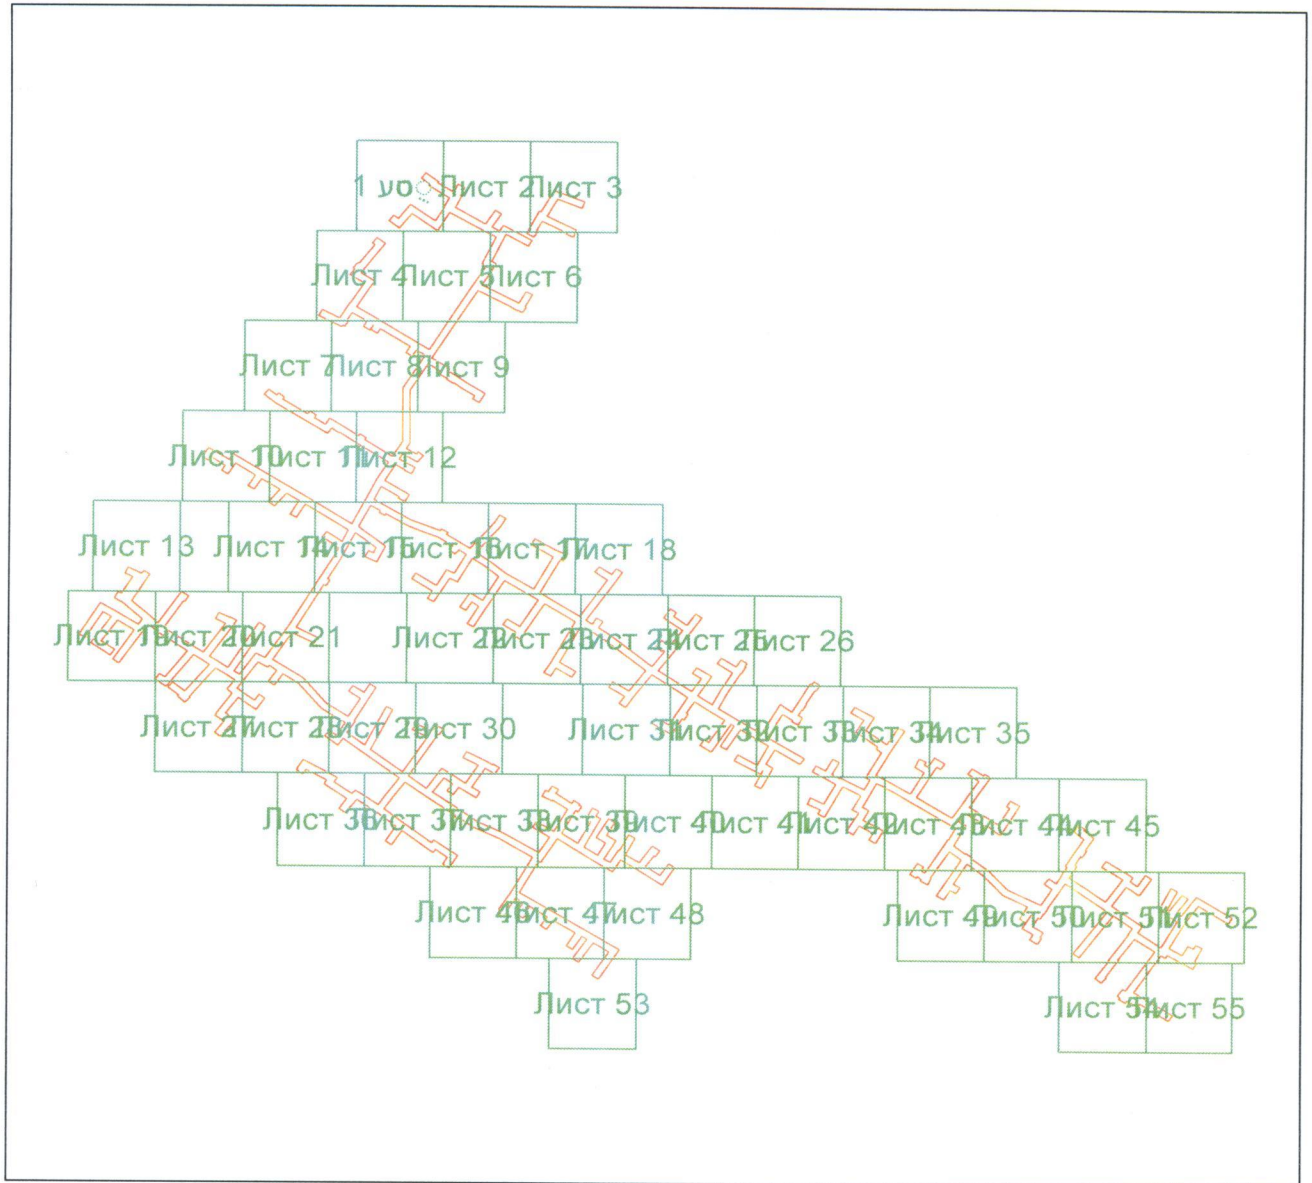 Лист 2 Лист 3
Лист 4 Лист 5 Лист 6
Лист 7 Лист 8 Лист 9
Лист 10 Лист 11 Лист 12
Лист 13 Лист 14 Лист 15 Лист 16 Лист 17 Лист 18
Лист 19 Лист 20 Лист 21 Лист 22 Лист 23 Лист 24 Лист 25 Лист 26
Лист 27 Лист 28 Лист 29 Лист 30 Лист 31 Лист 32 Лист 33 Лист 34 Лист 35
Лист 36 Лист 37 Лист 38 Лист 39 Лист 40 Лист 41 Лист 42 Лист 43 Лист 44 Лист 45
Лист 46 Лист 47 Лист 48 Лист 49 Лист 50 Лист 51 Лист 52
Лист 53 Лист 54 Лист 55